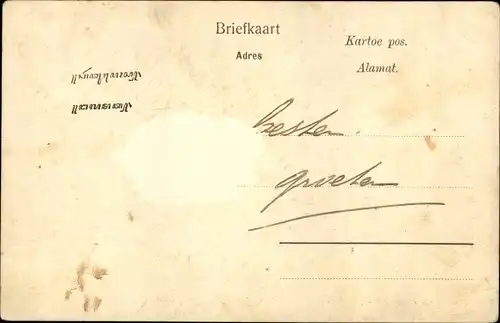 Briefkaart
Adres
Kartoe pos.
Alamat.
besten
groeten